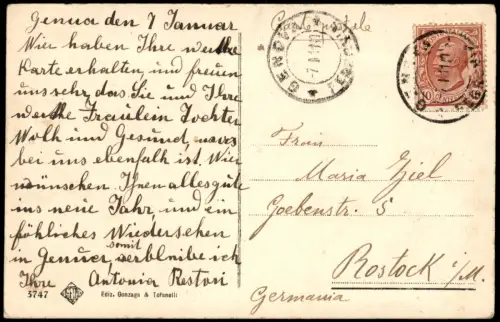 Genua den 7 Januar
Wir haben Ihre werthe
Karte erhalten, und freuen
uns sehr, das Sie und Ihre
werthe Fräulein Tochter
Wolh und Gesund, was
bei uns ebenfalh ist. Wir
wünschen Ihnen alles gute
ins neue Jahr, und ein
föhliches Wiedersehen
in Genua, somit verbleibe ich
Ihre Antonia Restori
5747
Ediz. Gonzaga & Tofanelli
GENOVA
Frau
Maria Ziel
Goebenstr. 5
Rostock i/M.
Germania